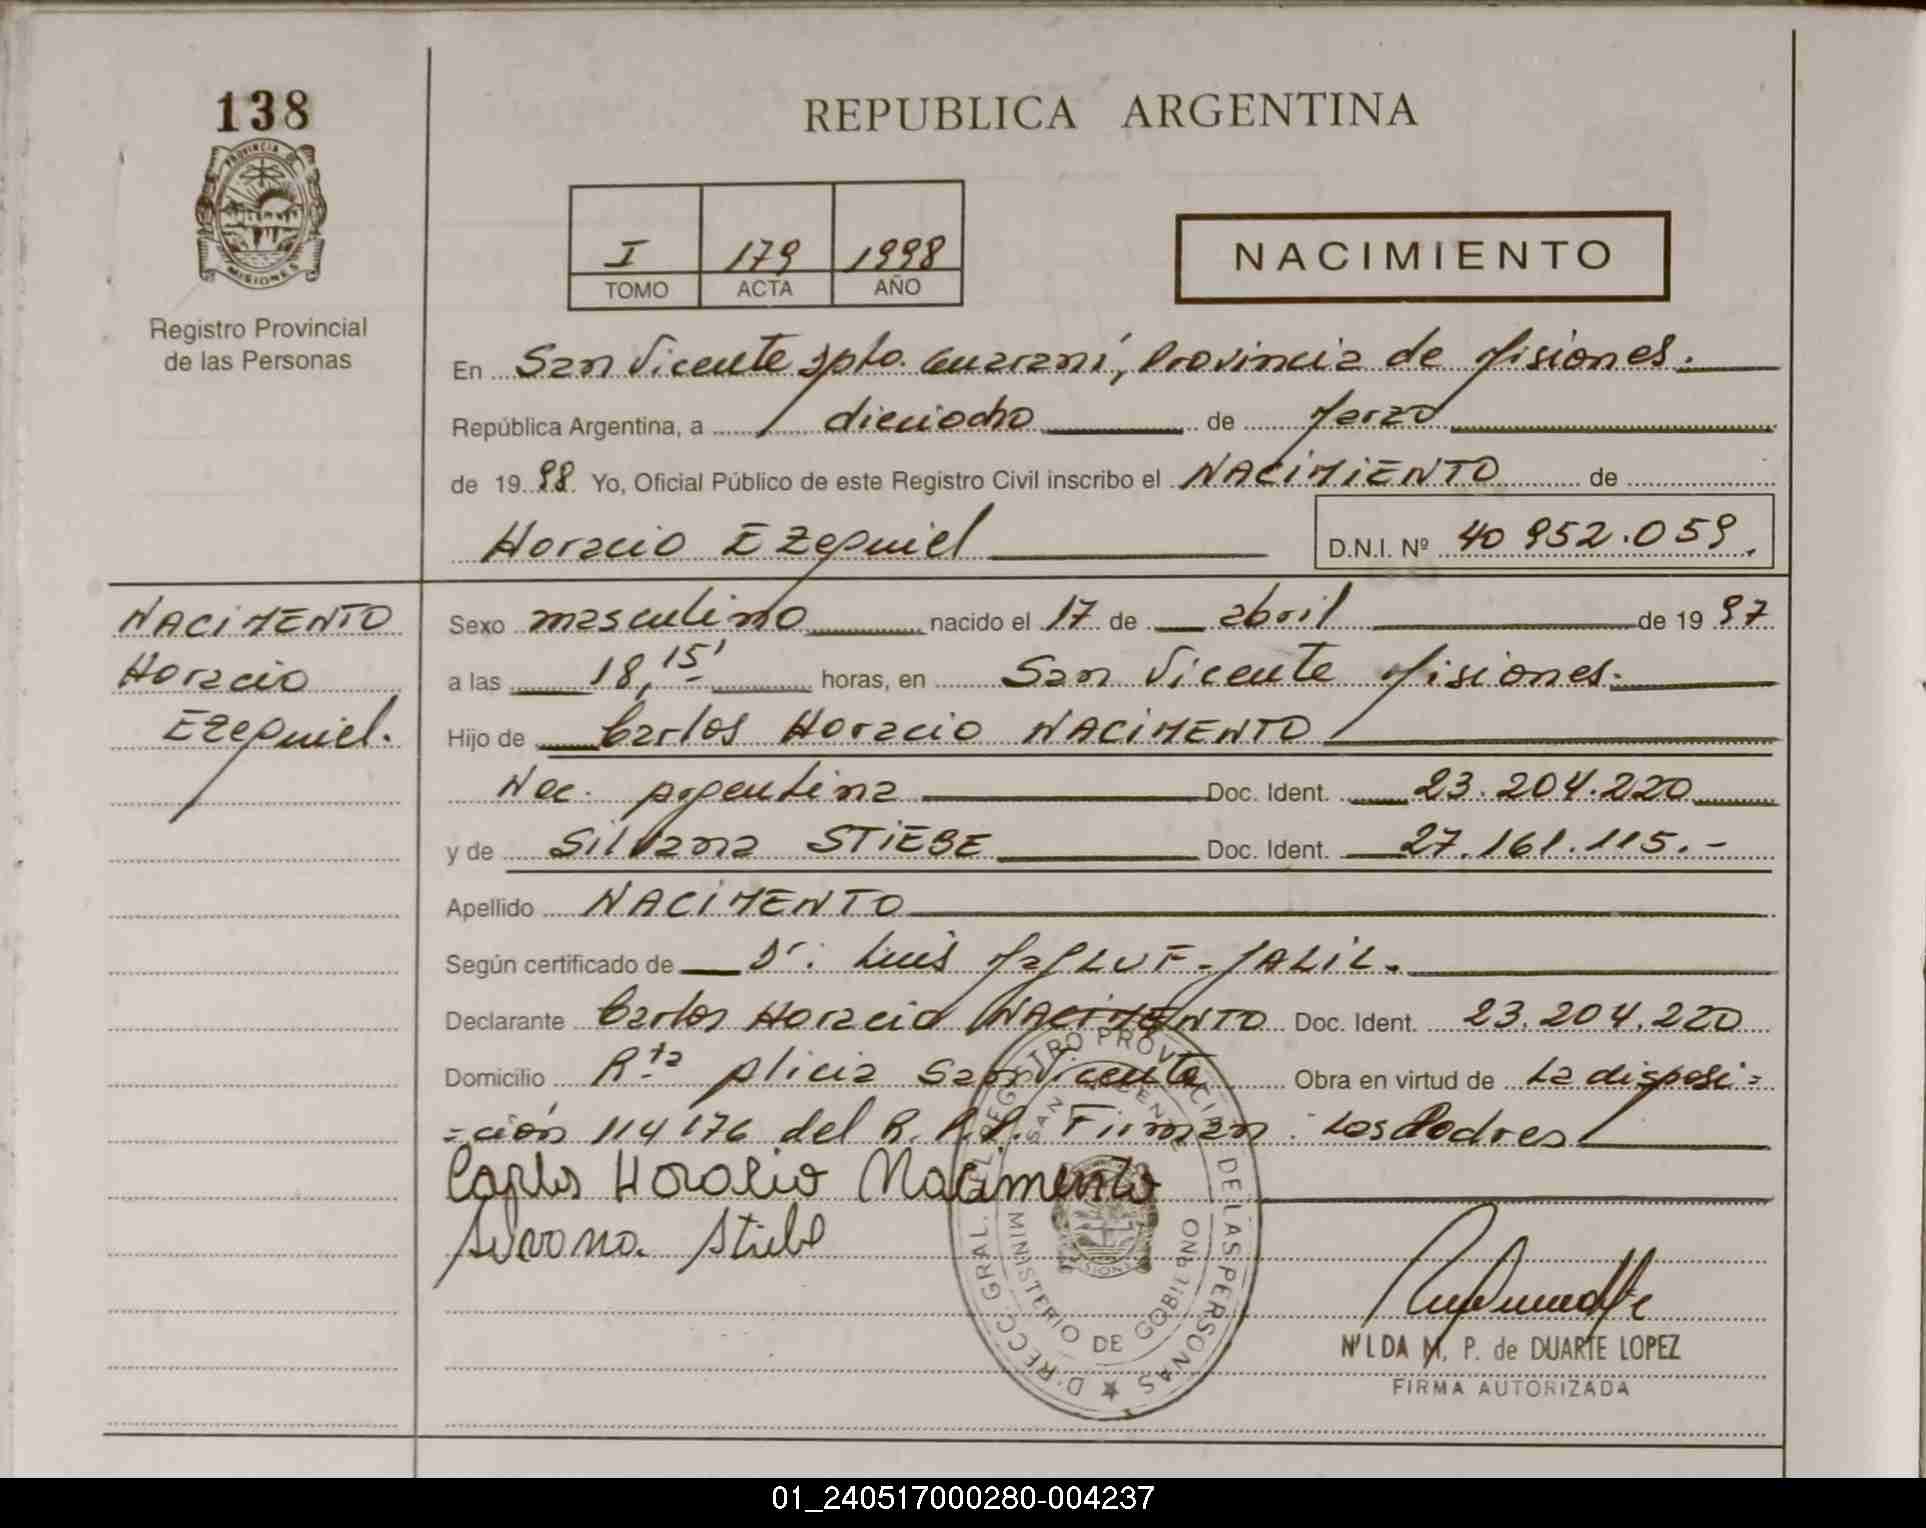 138
PROVINCIA DE
MISIONES
Registro Provincial
de las Personas
REPUBLICA ARGENTINA
I 179 1998
TOMO ACTA AÑO
NACIMIENTO
En San Vicente Dpto. Guaraní, Provincia de Misiones.
República Argentina, a dieciocho de Marzo
de 1998. Yo, Oficial Público de este Registro Civil inscribo el NACIMIENTO de
Horacio Ezequiel D.N.I. Nº 40 952.059.
NACIMENTO
Horacio
Ezequiel.
Sexo masculino nacido el 17 de abril de 1997
a las 18,15' horas, en San Vicente Misiones.
Hijo de Carlos Horacio NACIMENTO
Nac. Argentina Doc. Ident. 23.204.220
y de Silvana STIEBE Doc. Ident. 27.161.115.-
Apellido NACIMENTO
Según certificado de Dr. Luis MaLUF-JALIL.
Declarante Carlos Horacio NACIMENTO Doc. Ident. 23.204.220
Domicilio Rta Alicia San Vicente Obra en virtud de La disposi=
=ción 114/76 del R.P.P. Firman: Los Padres
Carlos Horacio Nacimento
Silvana Stiebe
DIRECC. GRAL. DEL REGISTRO PROVINCIAL DE LAS PERSONAS
SAN VICENTE
MINISTERIO DE GOBIERNO
MISIONES
NILDA M. P. de DUARTE LOPEZ
FIRMA AUTORIZADA
01_240517000280-004237